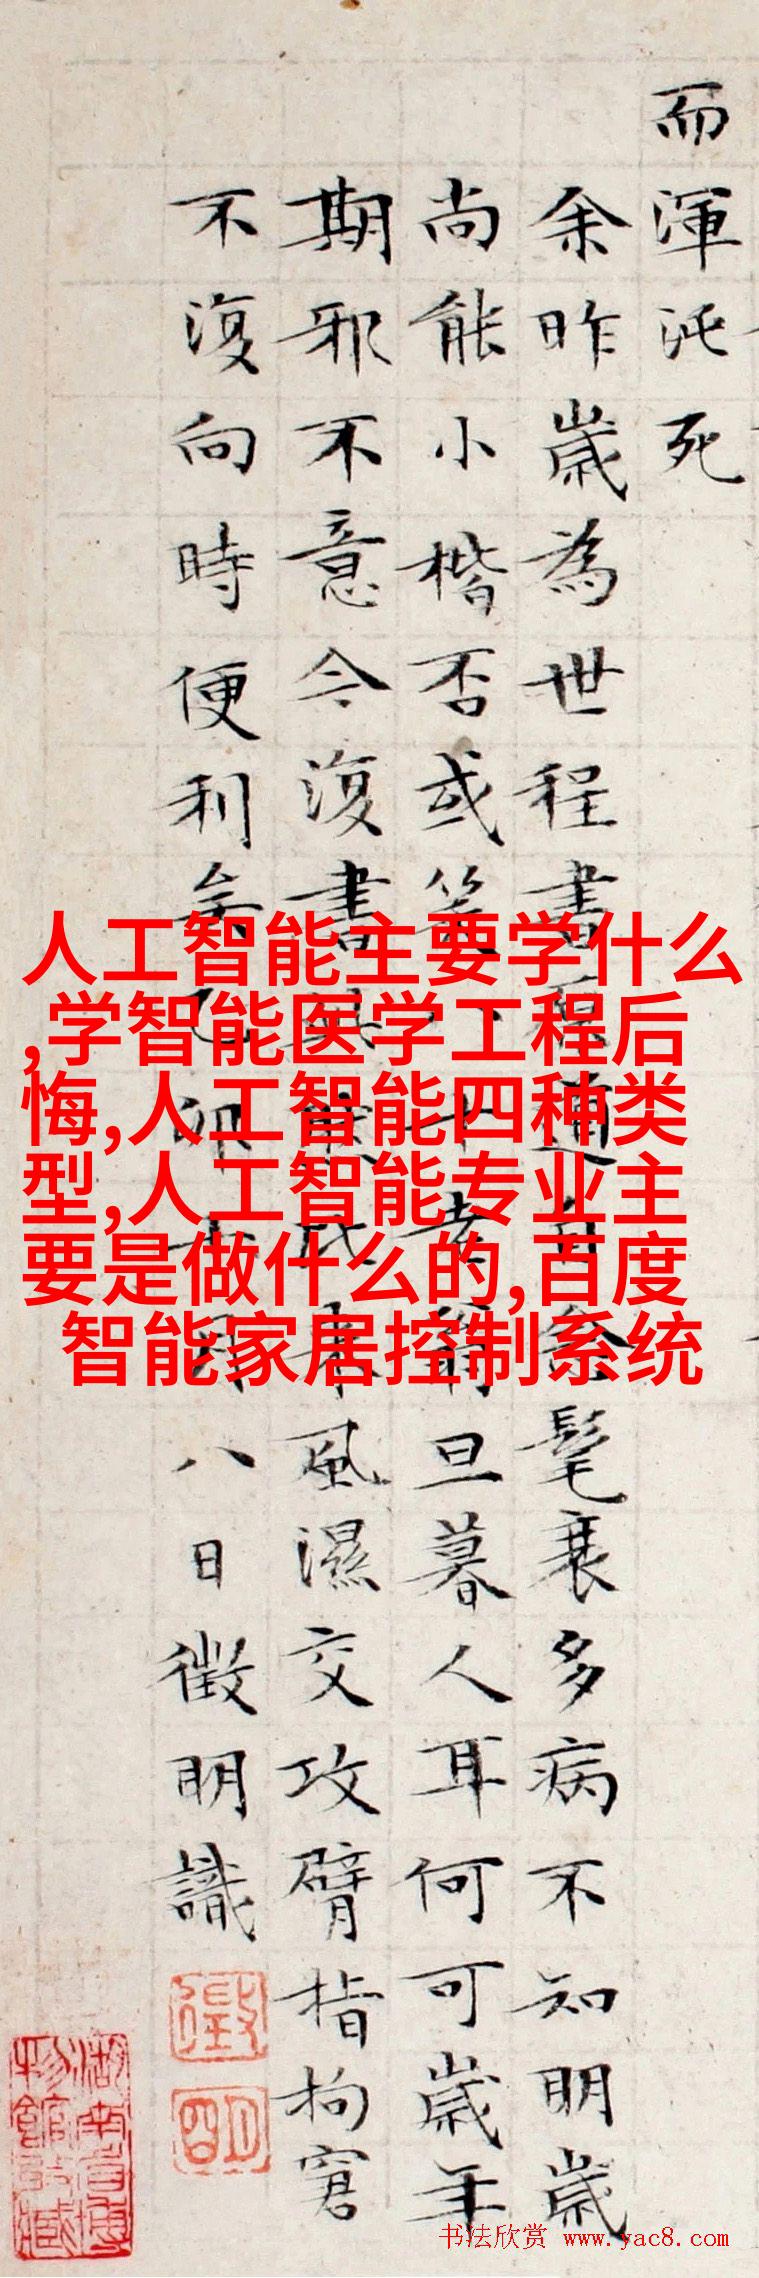 而渾沌死
余昨歲為世程書髦衰多病不知明歲
尚能小楷否或笑八十老翁旦暮人耳何可歲年
期邪不意今復書風濕交攻臂指拘窘
不復向時便利矣乙卯八日徵明識
人工智能主要学什么
,学智能医学工程后
悔,人工智能四种类
型,人工智能专业主
要是做什么的,百度
智能家居控制系统
书法欣赏 www.yac8.com